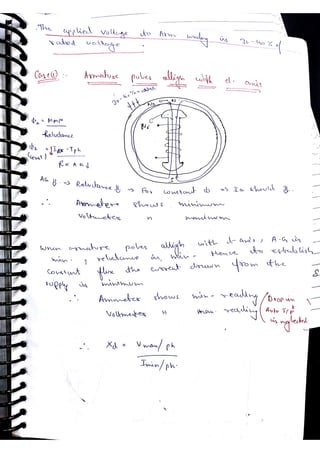 The applied voltage to Arm wndg is 30-40% of
rated voltage.
Case(i) :- Armature poles allign with d-axis
30-40% rated
Φs = MMF
Reluctance
Tph
R = 
AG ↓ → Reluctance ↓ → For constant Φ → Ia should ↓
∴ Ammeter shows minimum
Voltmeter " maximum
when armature poles allign with d-axis, A.G is
min., reluctance is min. Hence to establish
constant flux the current drawn from the
supply is minimum
∴ Ammeter shows min. reading
Voltmeter " max. reading
Drop in
Auto T/F
is neglected
∴ Xd = Vmax/ph
Imin/ph.